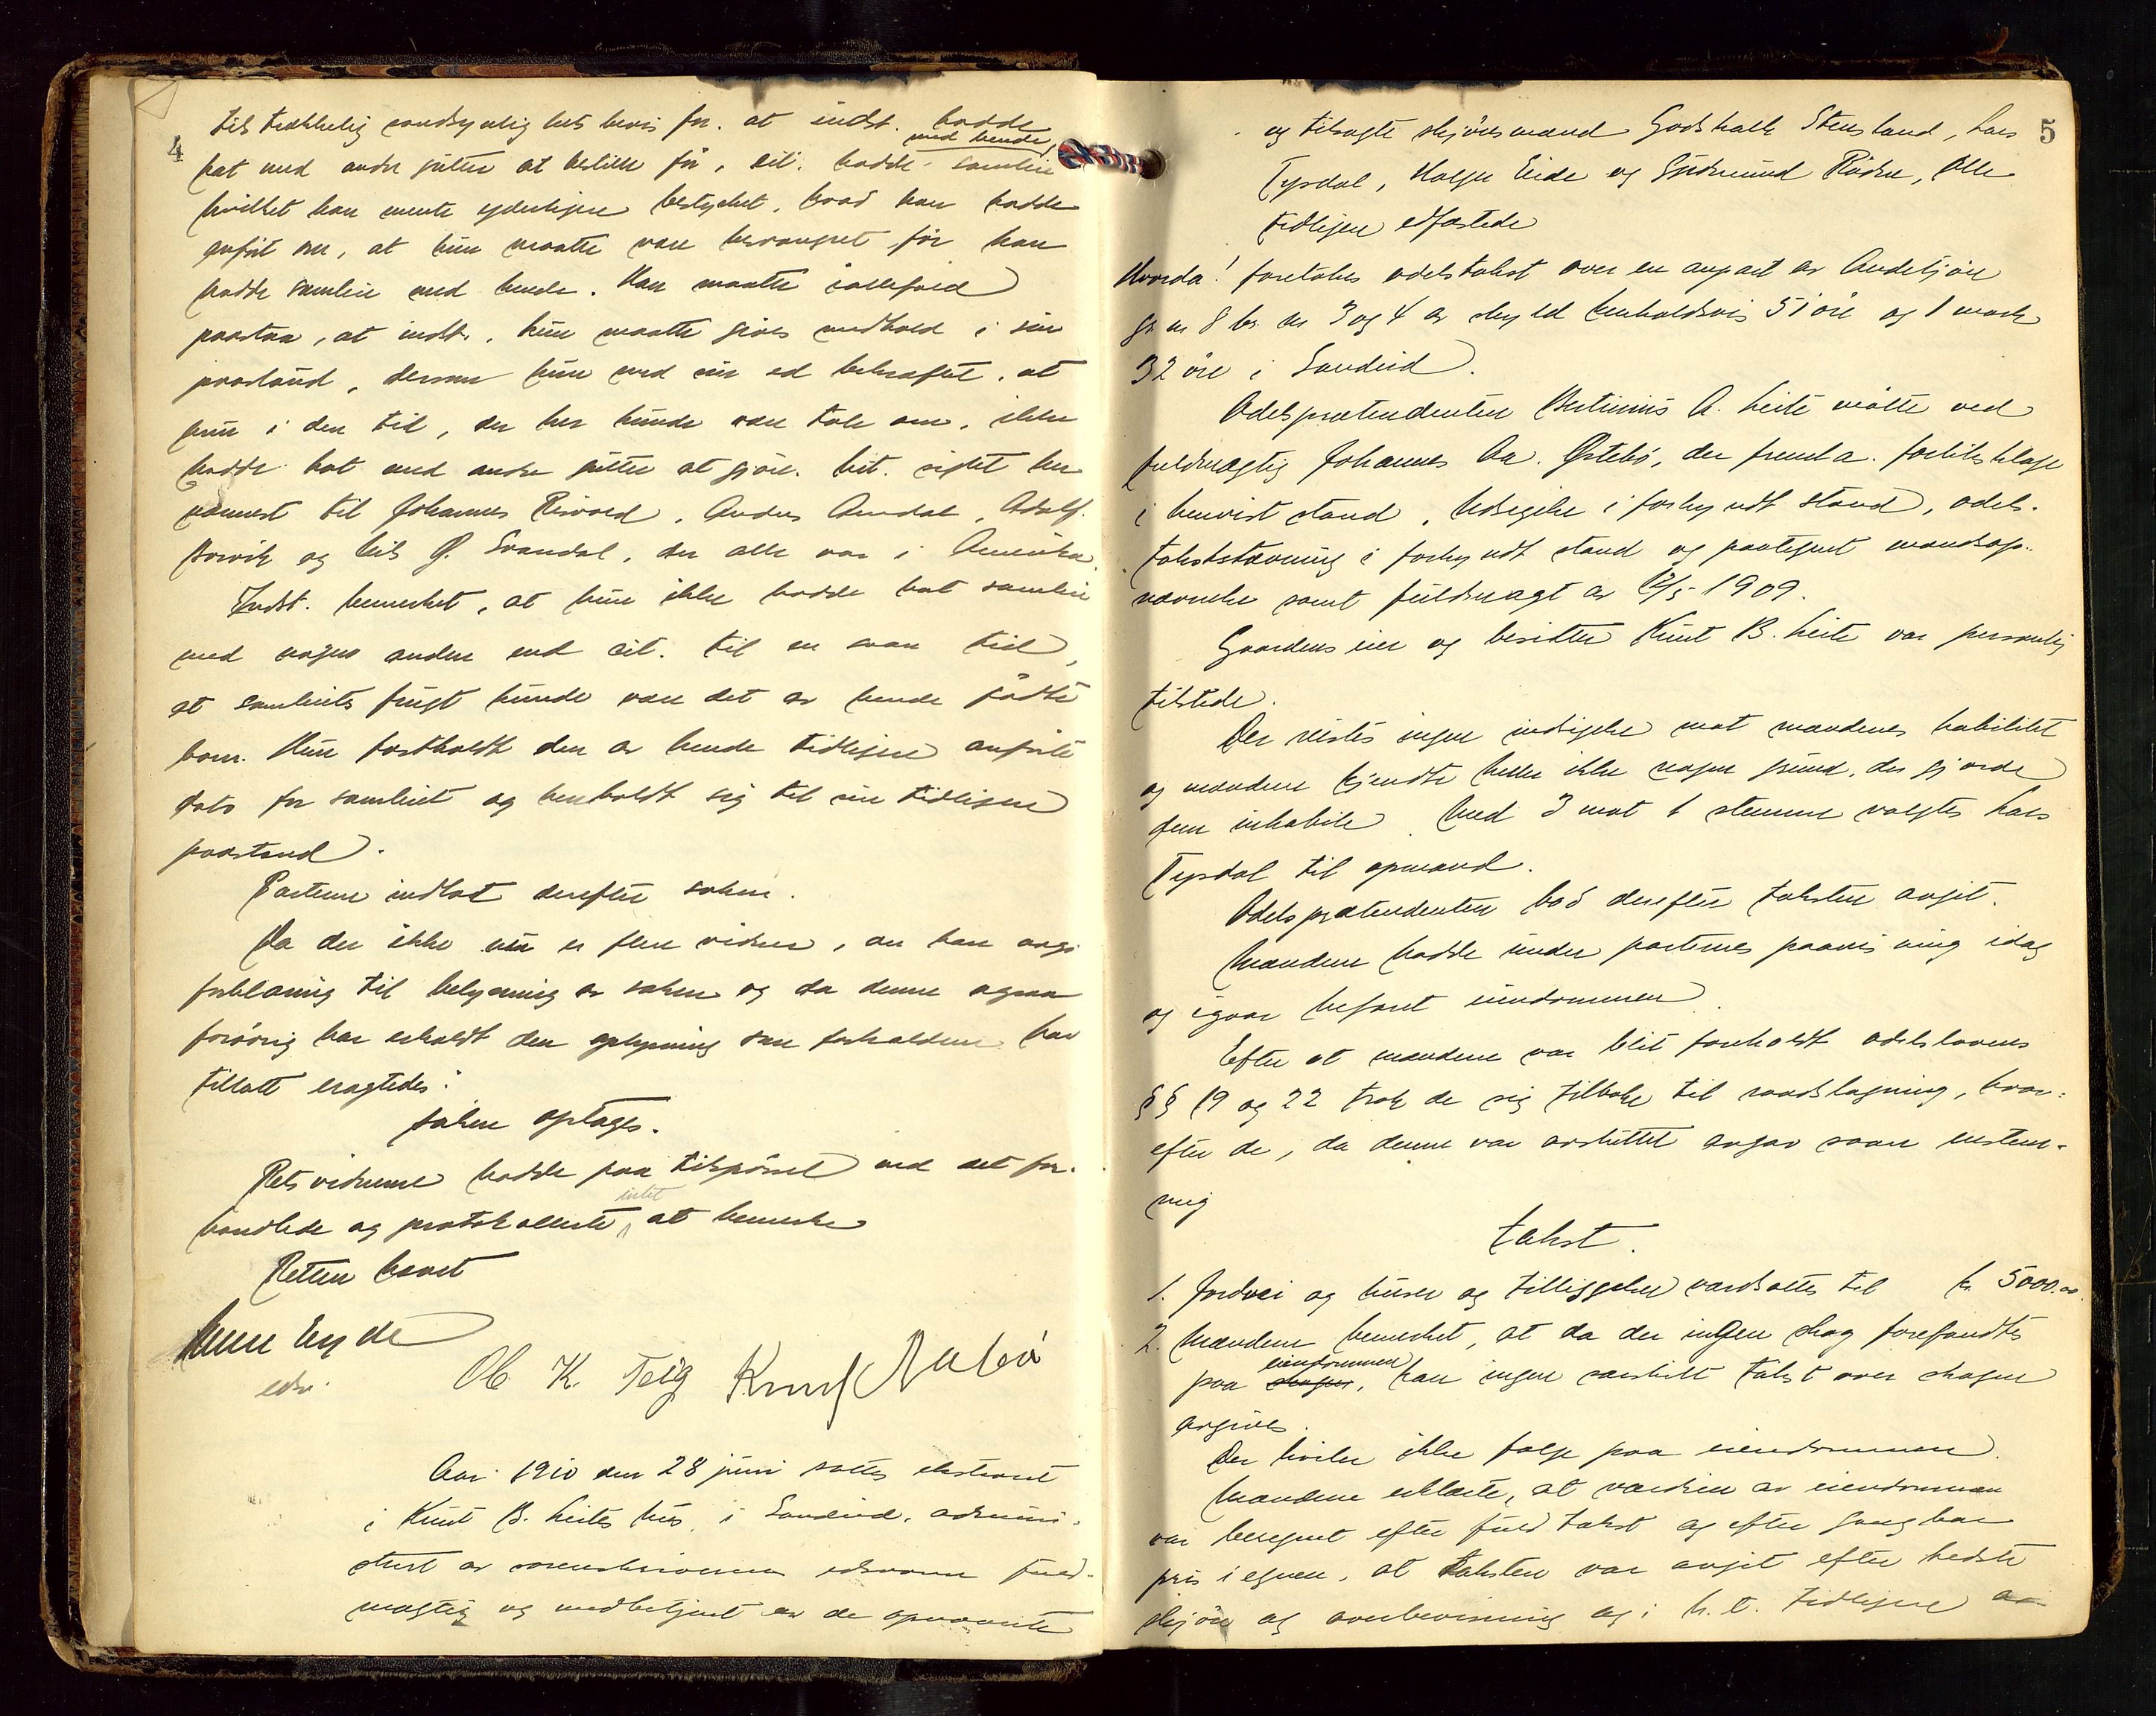 4
tilstrækkelig sandsynliggjort bevis for, at indst. hadde
hat med andre gutter at bestille før, cit. hadde med hende samleie
hvilket han mente yderligere bestyrket, hvad han hadde
anført om, at hun maatte være besvangret før han
hadde samleie med hende. Han maatte iallefald
paastaa, at indst., hun maatte gives medhold i sin
paastand, dersom hun med sin ed bekræftet, at
hun i den tid, der her kunde være tale om, ikke
hadde hat med andre gutter at gjøre. Cit. sigtet her
nærmest til Johannes Risvold, Anders Amdal, Adolf
Norvik og Nils Ø. Svandal, der alle var i Amerika.
Indst. bemerket, at hun ikke hadde hat samleie
med nogen anden end cit. til en saan tid,
at samleiets frugt kunde være det av hende fødte
barn. Hun fastholdt den av hende tidligere anførte
dato for samleiet og henholdt sig til sin tidligere
paastand.
Parterne indlot derefter saken.
Da der ikke nu er flere vidner, der kan avgi
forklaring til belysning av saken og da denne ogsaa
forøvrig har erholdt den oplysning som forholdene har
tillatt eragtedes:
saken optages.
Retsvidnerne hadde paa tilspørsel ved det for-
handlede og protokollerte intet at bemerke
Retten hævet
edsv.
Ole K. Teig Knud Nabø
Aar 1910 den 28 juni sattes ekstraret
i Knut B. Leites hus i Sandeid, admini-
strert av sorenskriverens edsvorne fuld-
mægtig og medbetjent av de opnævnte
5
og tilsagte skjønsmænd Godskalk Stensland, Lars
Tysdal, Halgr Eide og Gudmund Rødne, Alle
tidligere edfæstede
Hvorda! foretokes odelstakst over en anpart av Indebjøre
gr nr 8 br. nr 3 og 4 av skyld henholdsvis 51 øre og 1 mark
32 øre i Sandeid.
Odelsprætendenten Bertinius A. Leite møtte ved
fuldmægtig Johannes Aa. Østebø, der fremla forlikskla​ge
i henvist stand, utsigelse i forkyndt stand, odels-
takststævning i forkyndt stand og paategnet mandsop-
nævnelse samt fuldmagt av 12/5 1909.
Gaardens eier og besitter Knut B. Leite var personlig
tilstede.
Der reistes ingen indsigelse mot mændenes habilitet
og mændene kjendte heller ikke nogen grund, der gjorde
dem inhabile. Med 3 mot 1 stemme valgtes Lars
Tysdal til opmand.
Odelsprætendenten bad derefter taksten avgit.
Mændene hadde under parternes paavisning idag
og igaar befaret eiendommen.
Efter at mændene var blit foreholdt odelslovens
§§ 19 og 22 trak de sig tilbake til raadslagning, hvor-
efter de, da denne var avsluttet avgav saan enstem-
mig
takst.
1. Jordvei og huser og tilliggelser værdsattes til kr 5000.00.
2. Mændene bemerket, at da der ingen skog forefandtes
paa skogen eiendommen, kan ingen særskilt takst over skogen
avgives.
Der hviler ikke følge paa eiendommen.
Mændene erklærte, at værdien av eiendommen
var beregnet efter fuld takst og efter gangbar
pris i egnen, at taksten var avgit efter bedste
skjøn og overbevisning og i h. t. tidligere av-